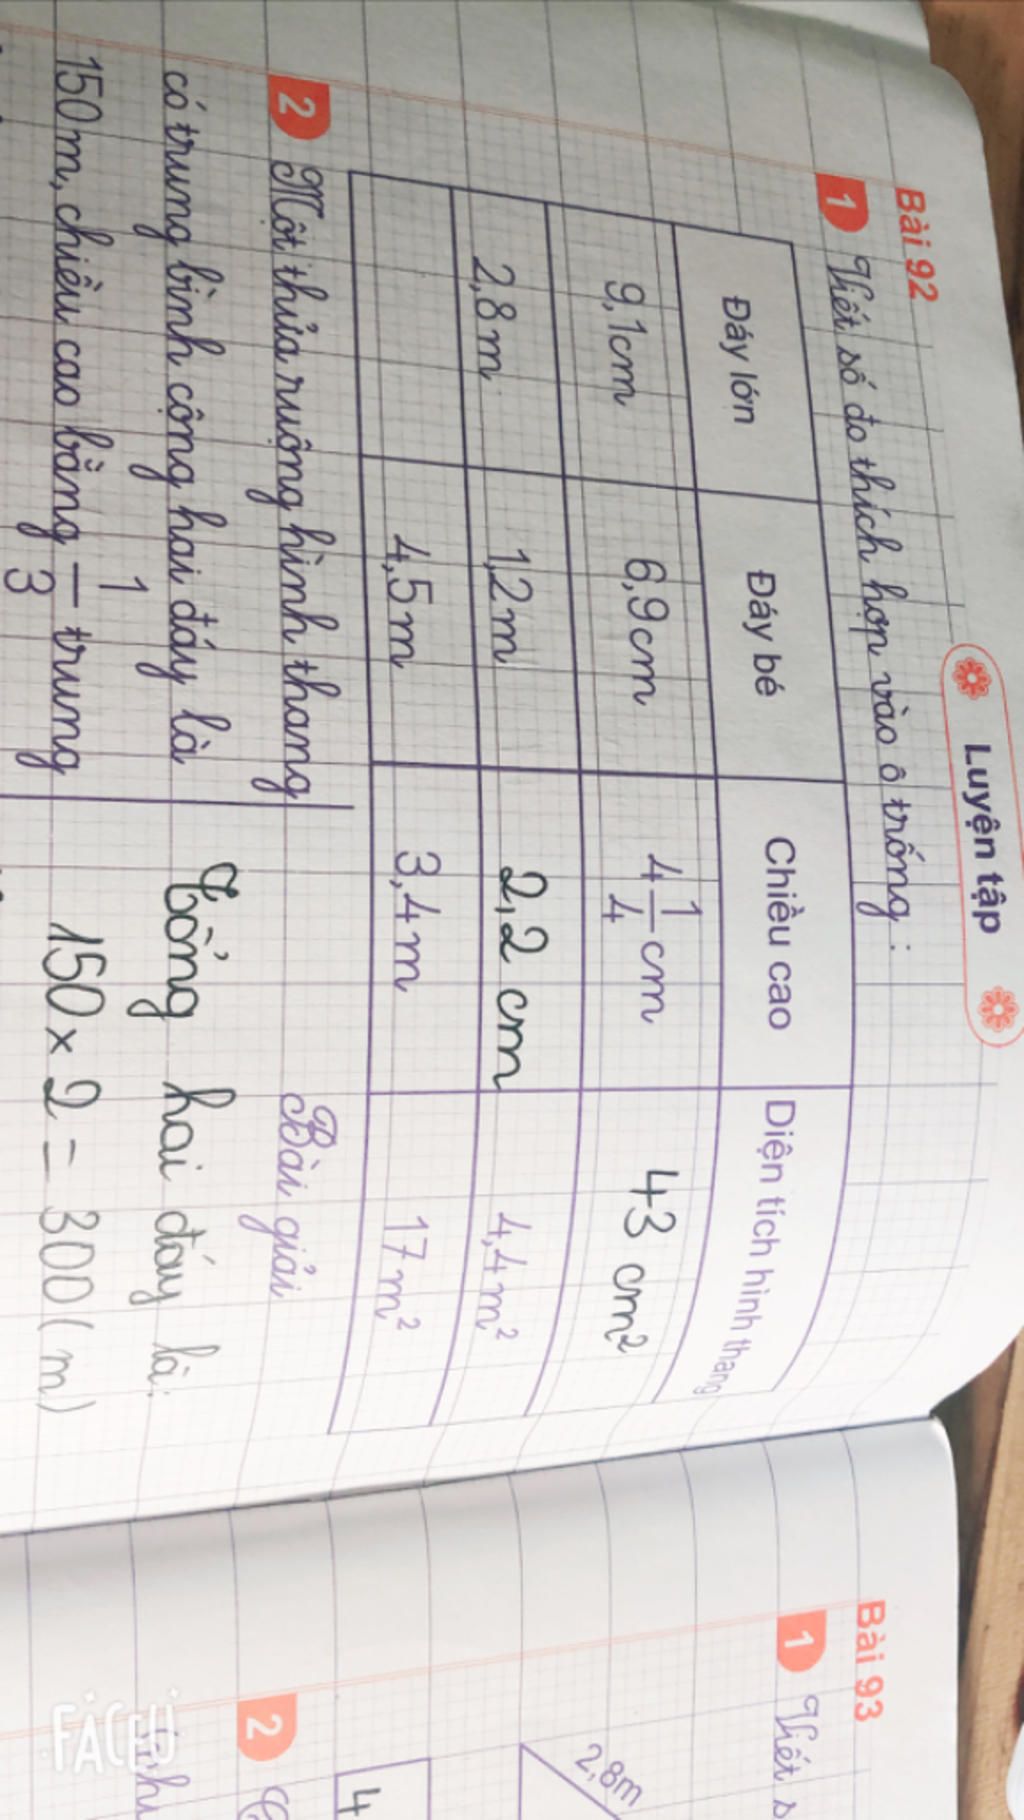 Luyện tập
Bài 92
1 Viết số đo thích hợp vào ô trống :
Đáy lớn Đáy bé Chiều cao Diện tích hình thang
9,1cm 6,9cm 4 1/4 cm 43 cm²
2,8m 1,2m 2,2 cm 4,4m²
4,5m 3,4m 17m²
2 Một thửa ruộng hình thang
có trung bình cộng hai đáy là
150m, chiều cao bằng 1/3 trung
Bài giải
Tổng hai đáy là:
150 x 2 = 300 ( m )
Bài 93
1 Viết s
2,8m
2
4
FACEU